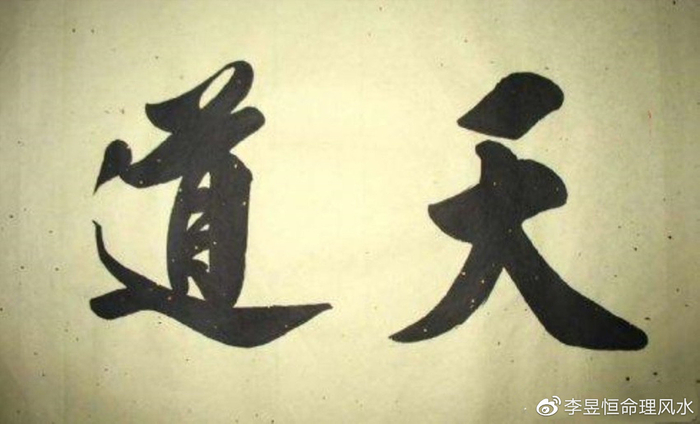 天道
李昱恒命理风水